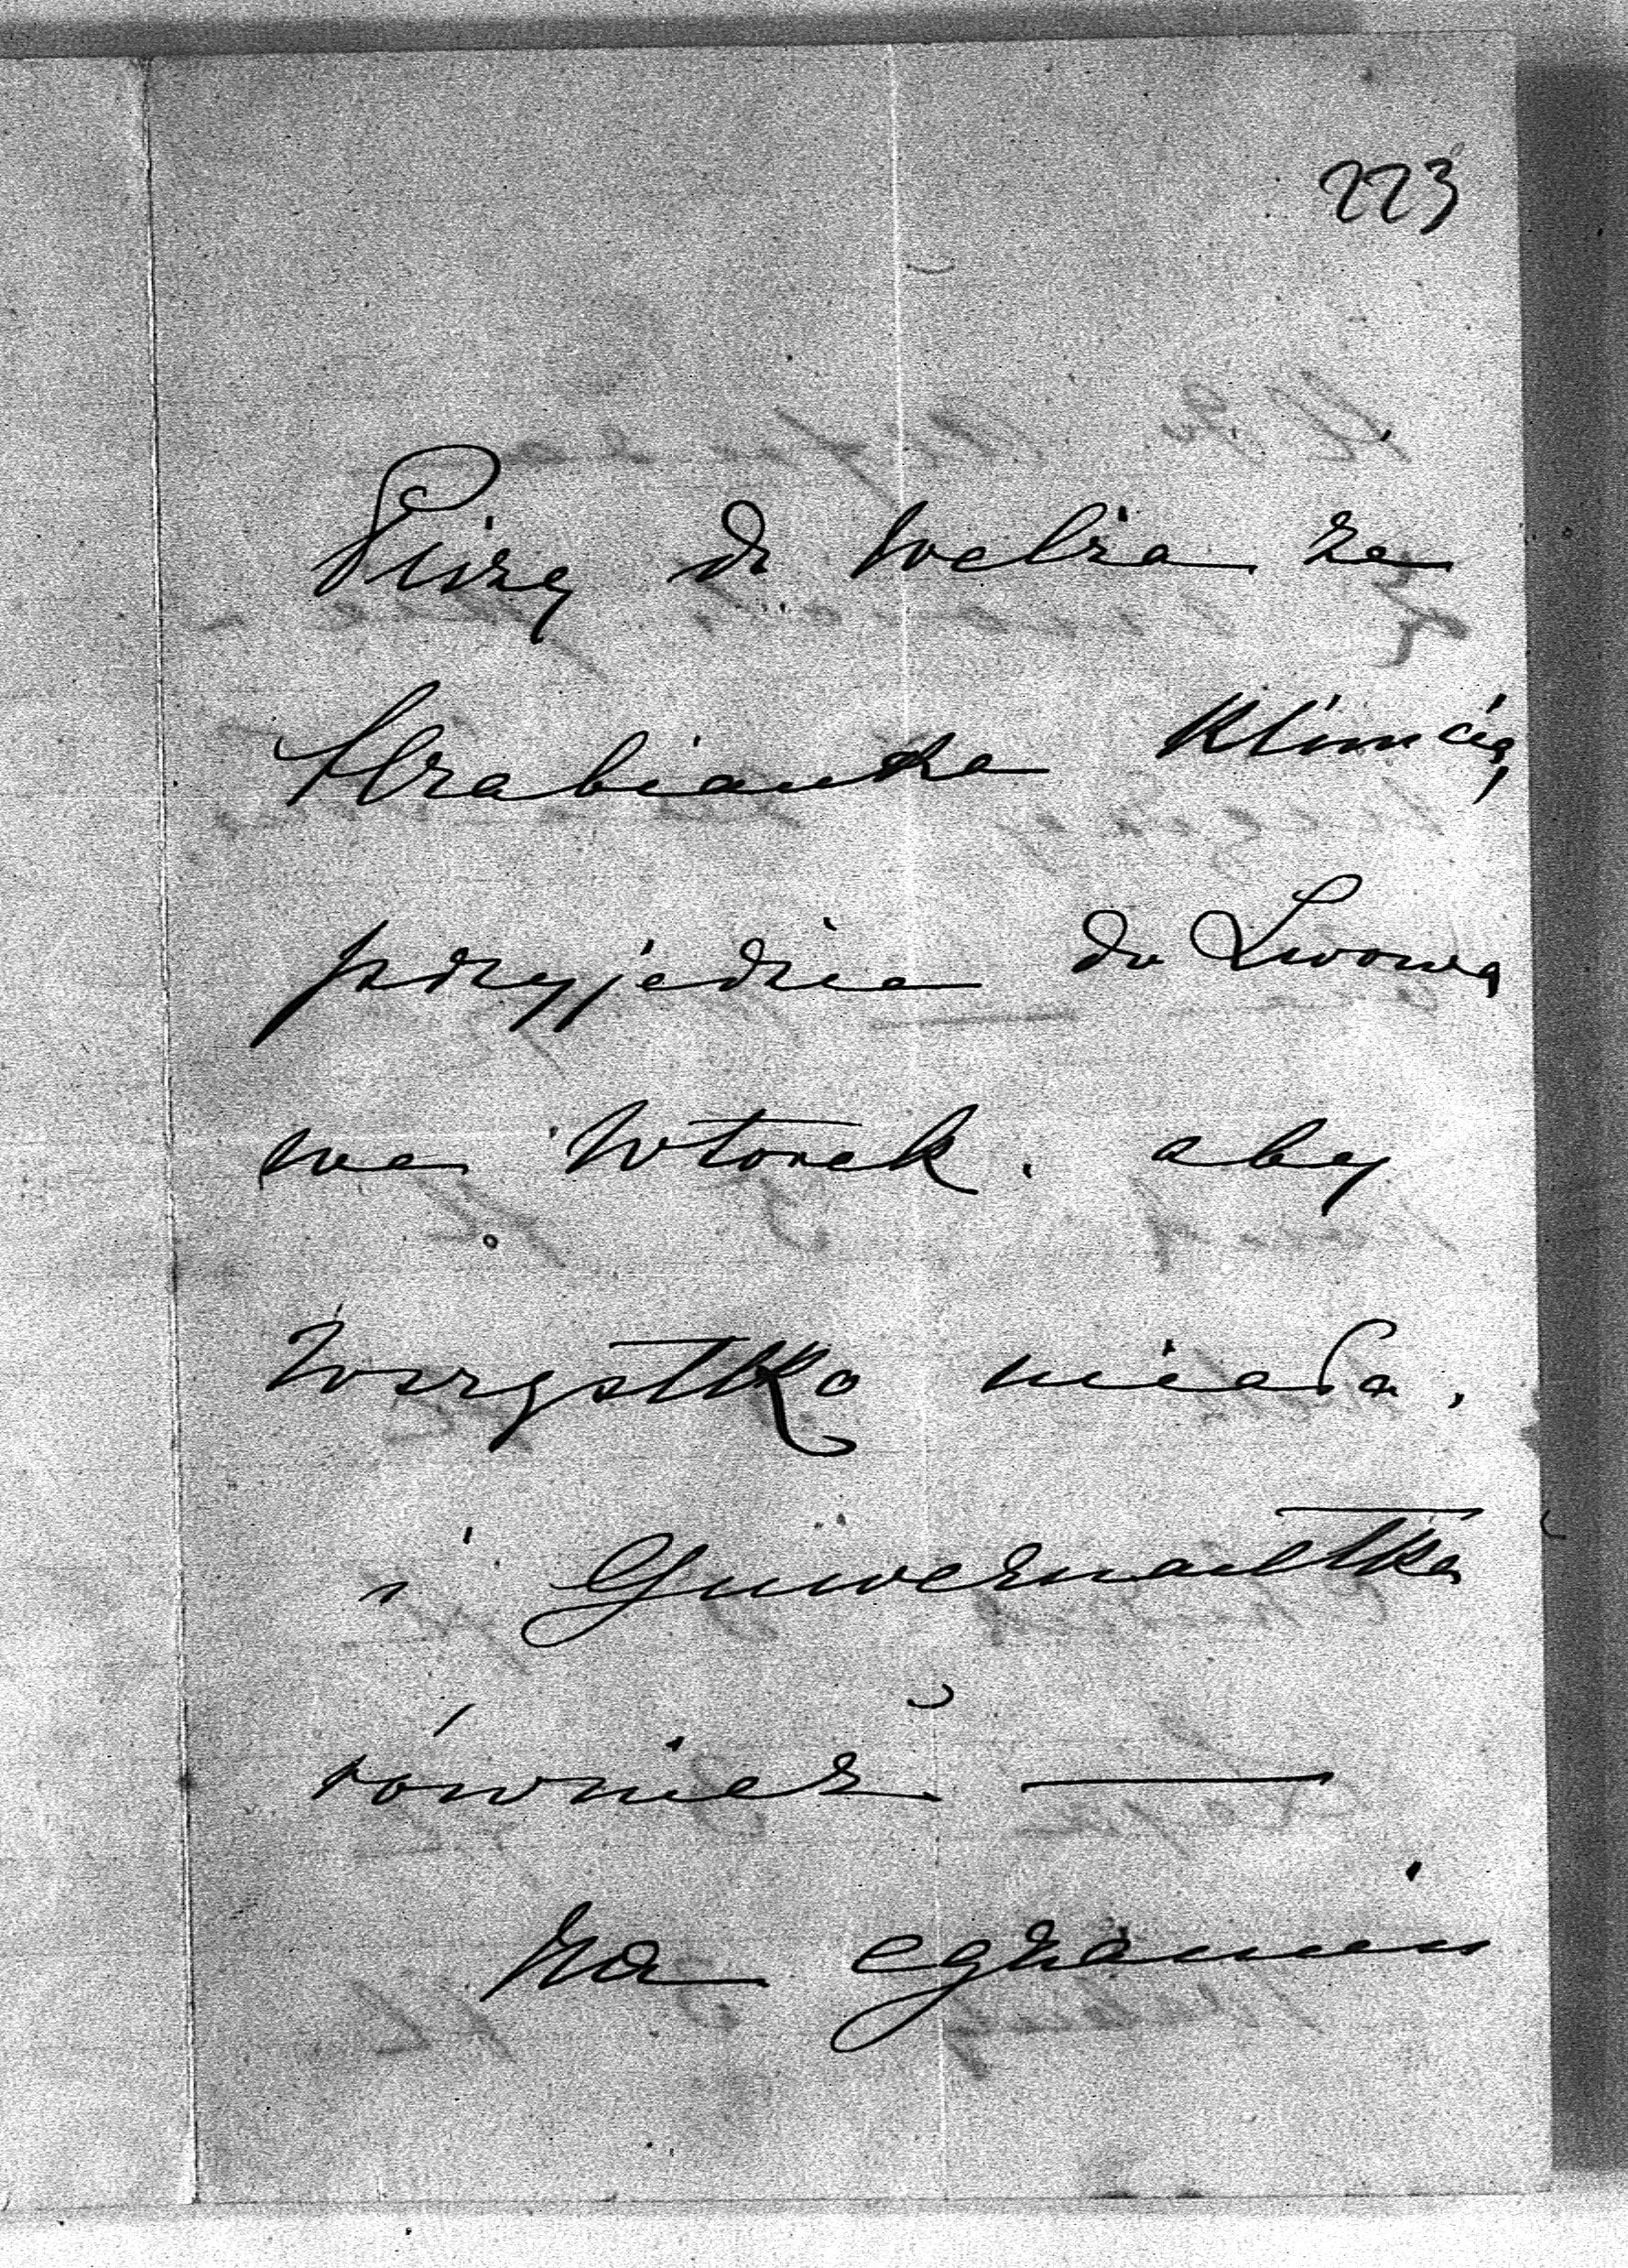 223
Piszę do Welza ze
Hrabianka Klimcia,
przyjedzie do Lwowa
we Wtorek. aby
Wszystko miała,
i Guwernantka
również —
na egzamin